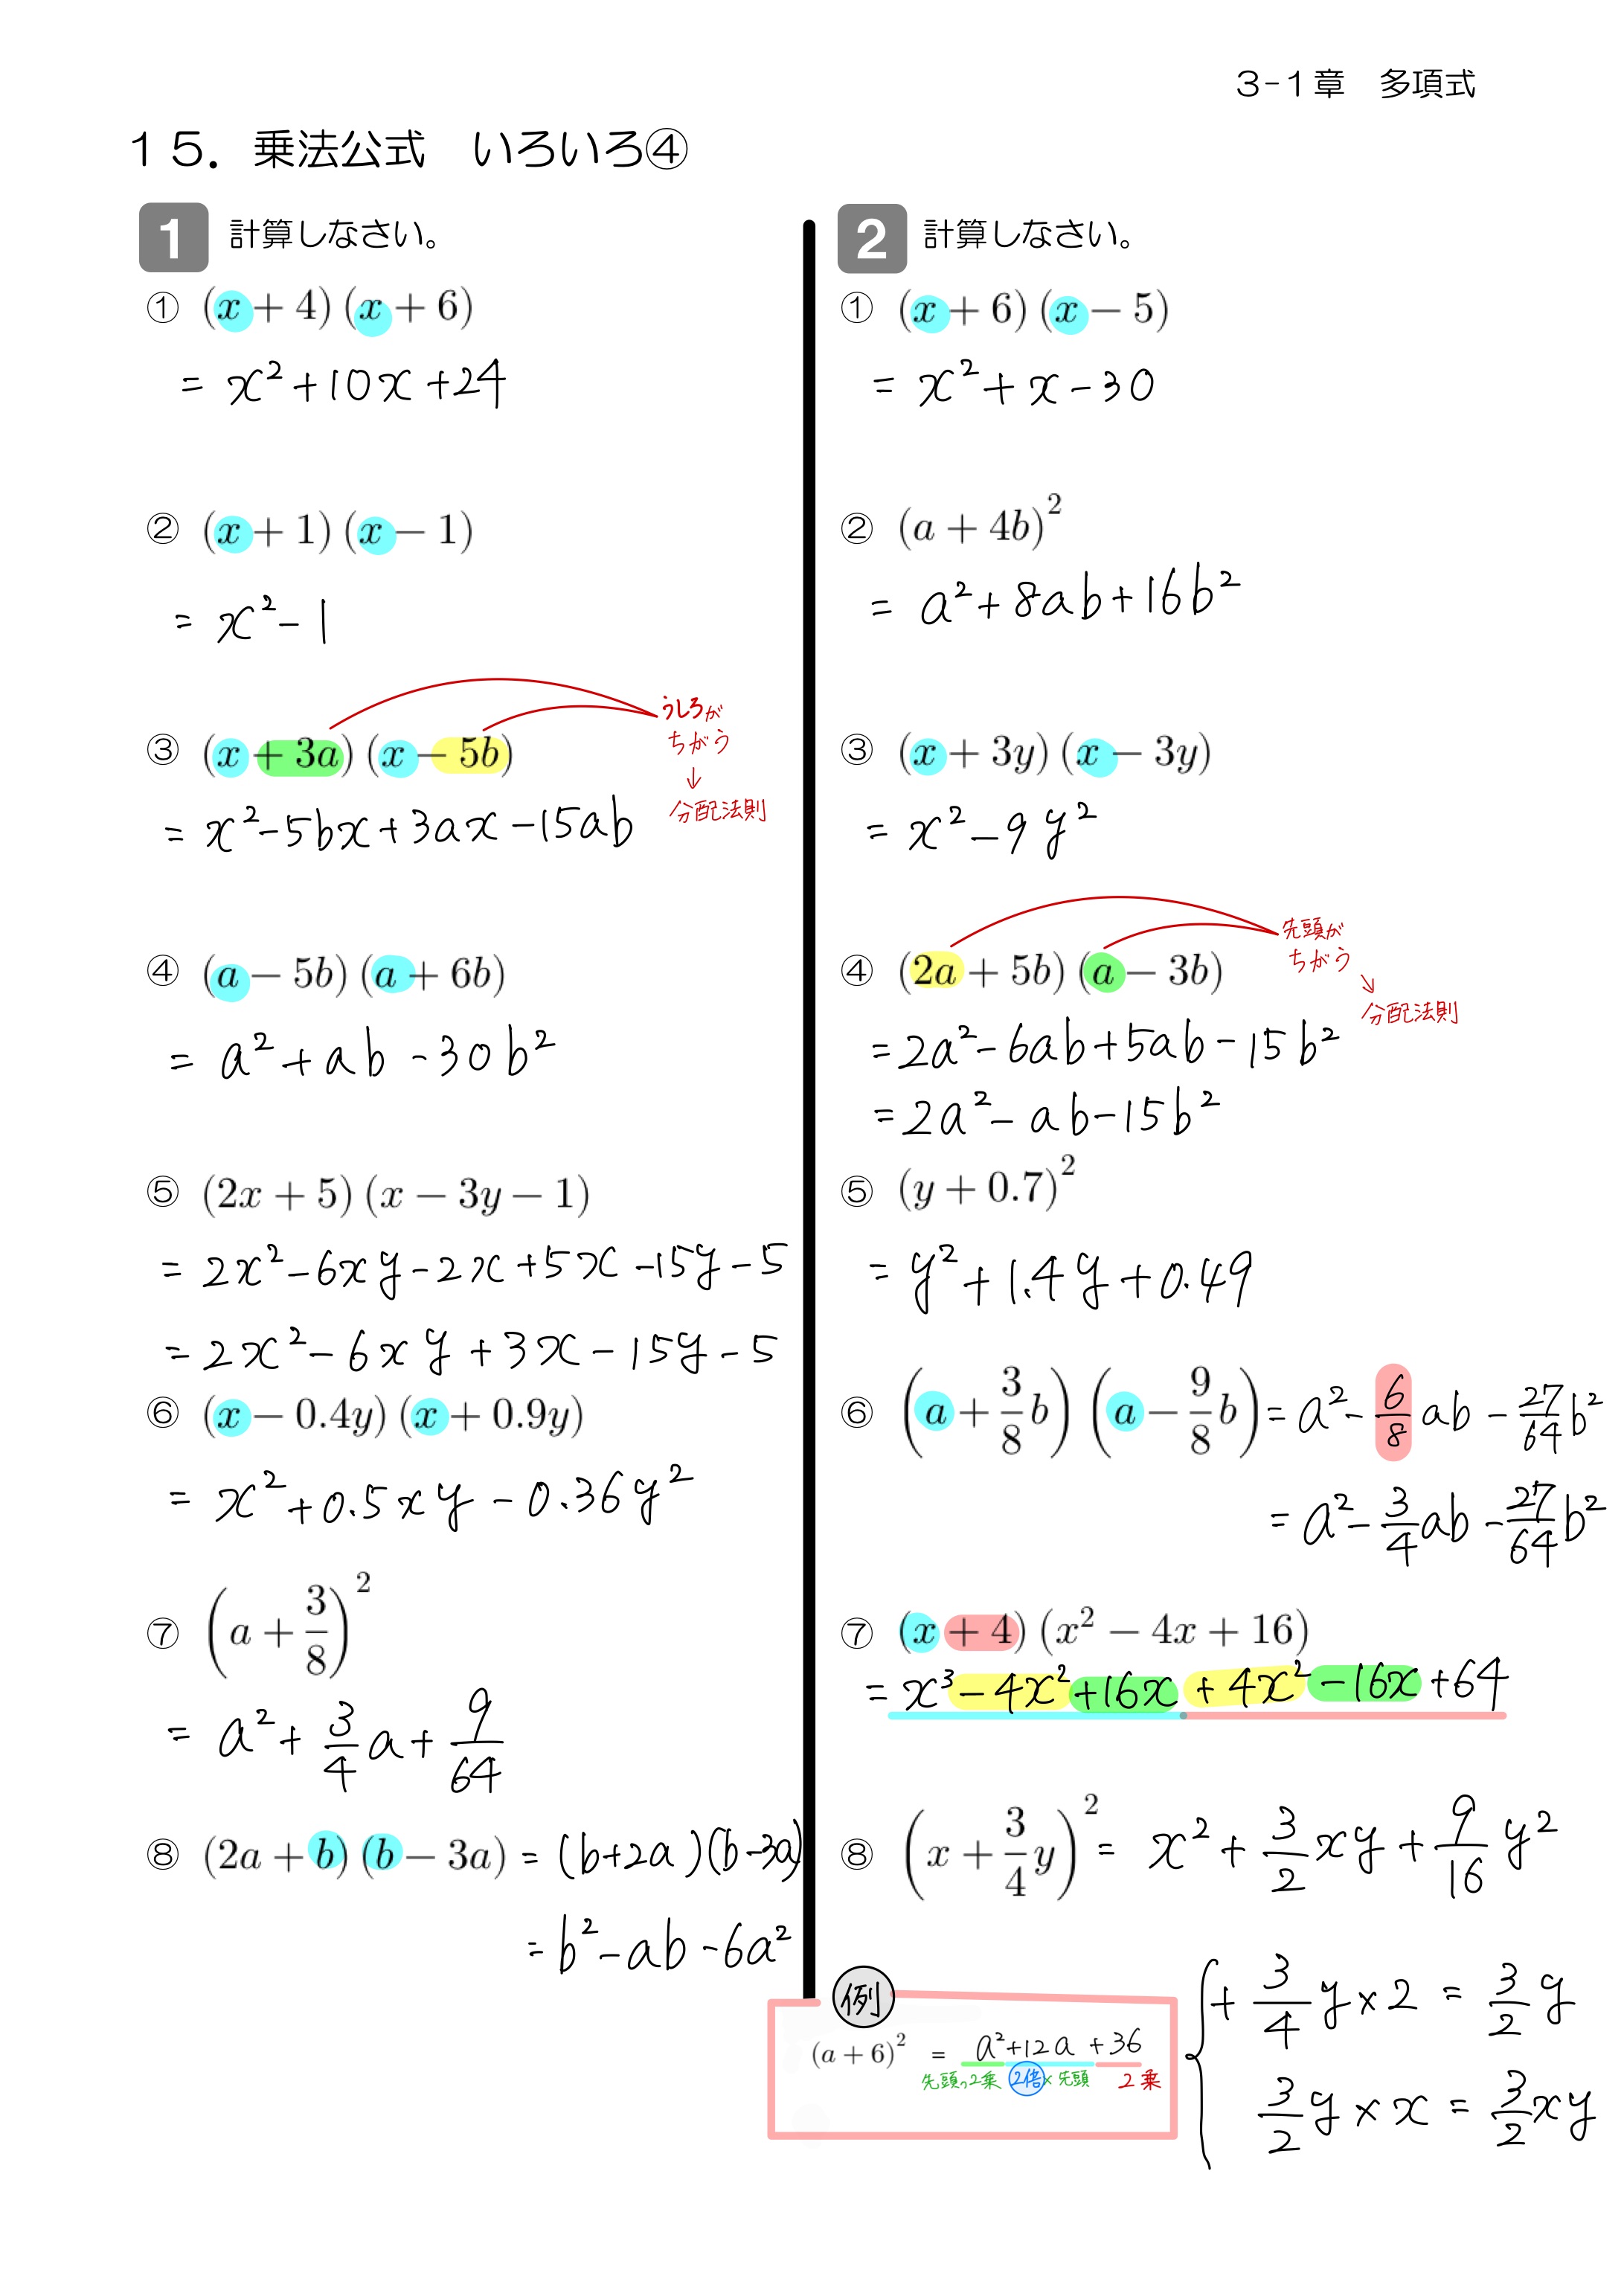 3-1章　多項式
１５．乗法公式　いろいろ④
1 計算しなさい。
① (x + 4) (x + 6)
= x² + 10x + 24
② (x + 1) (x − 1)
= x² − 1
③ (x + 3a) (x − 5b)
うしろが
ちがう
↓
分配法則
= x² − 5bx + 3ax − 15ab
④ (a − 5b) (a + 6b)
= a² + ab − 30b²
⑤ (2x + 5) (x − 3y − 1)
= 2x² − 6xy − 2x + 5x − 15y − 5
= 2x² − 6xy + 3x − 15y − 5
⑥ (x − 0.4y) (x + 0.9y)
= x² + 0.5xy − 0.36y²
⑦ (a + 3/8)²
= a² + 3/4 a + 9/64
⑧ (2a + b) (b − 3a) = (b+2a)(b−3a)
= b² − ab − 6a²
2 計算しなさい。
① (x + 6) (x − 5)
= x² + x − 30
② (a + 4b)²
= a² + 8ab + 16b²
③ (x + 3y) (x − 3y)
= x² − 9y²
④ (2a + 5b) (a − 3b)
先頭が
ちがう
↘
分配法則
= 2a² − 6ab + 5ab − 15b²
= 2a² − ab − 15b²
⑤ (y + 0.7)²
= y² + 1.4y + 0.49
⑥ (a + 3/8 b) (a − 9/8 b) = a² − 6/8 ab − 27/64 b²
= a² − 3/4 ab − 27/64 b²
⑦ (x + 4) (x² − 4x + 16)
= x³ − 4x² + 16x + 4x² − 16x + 64
⑧ (x + 3/4 y)² = x² + 3/2 xy + 9/16 y²
+ 3/4 y × 2 = 3/2 y
3/2 y × x = 3/2 xy
例
(a + 6)² = a² + 12a + 36
先頭の2乗 2倍×先頭 2乗